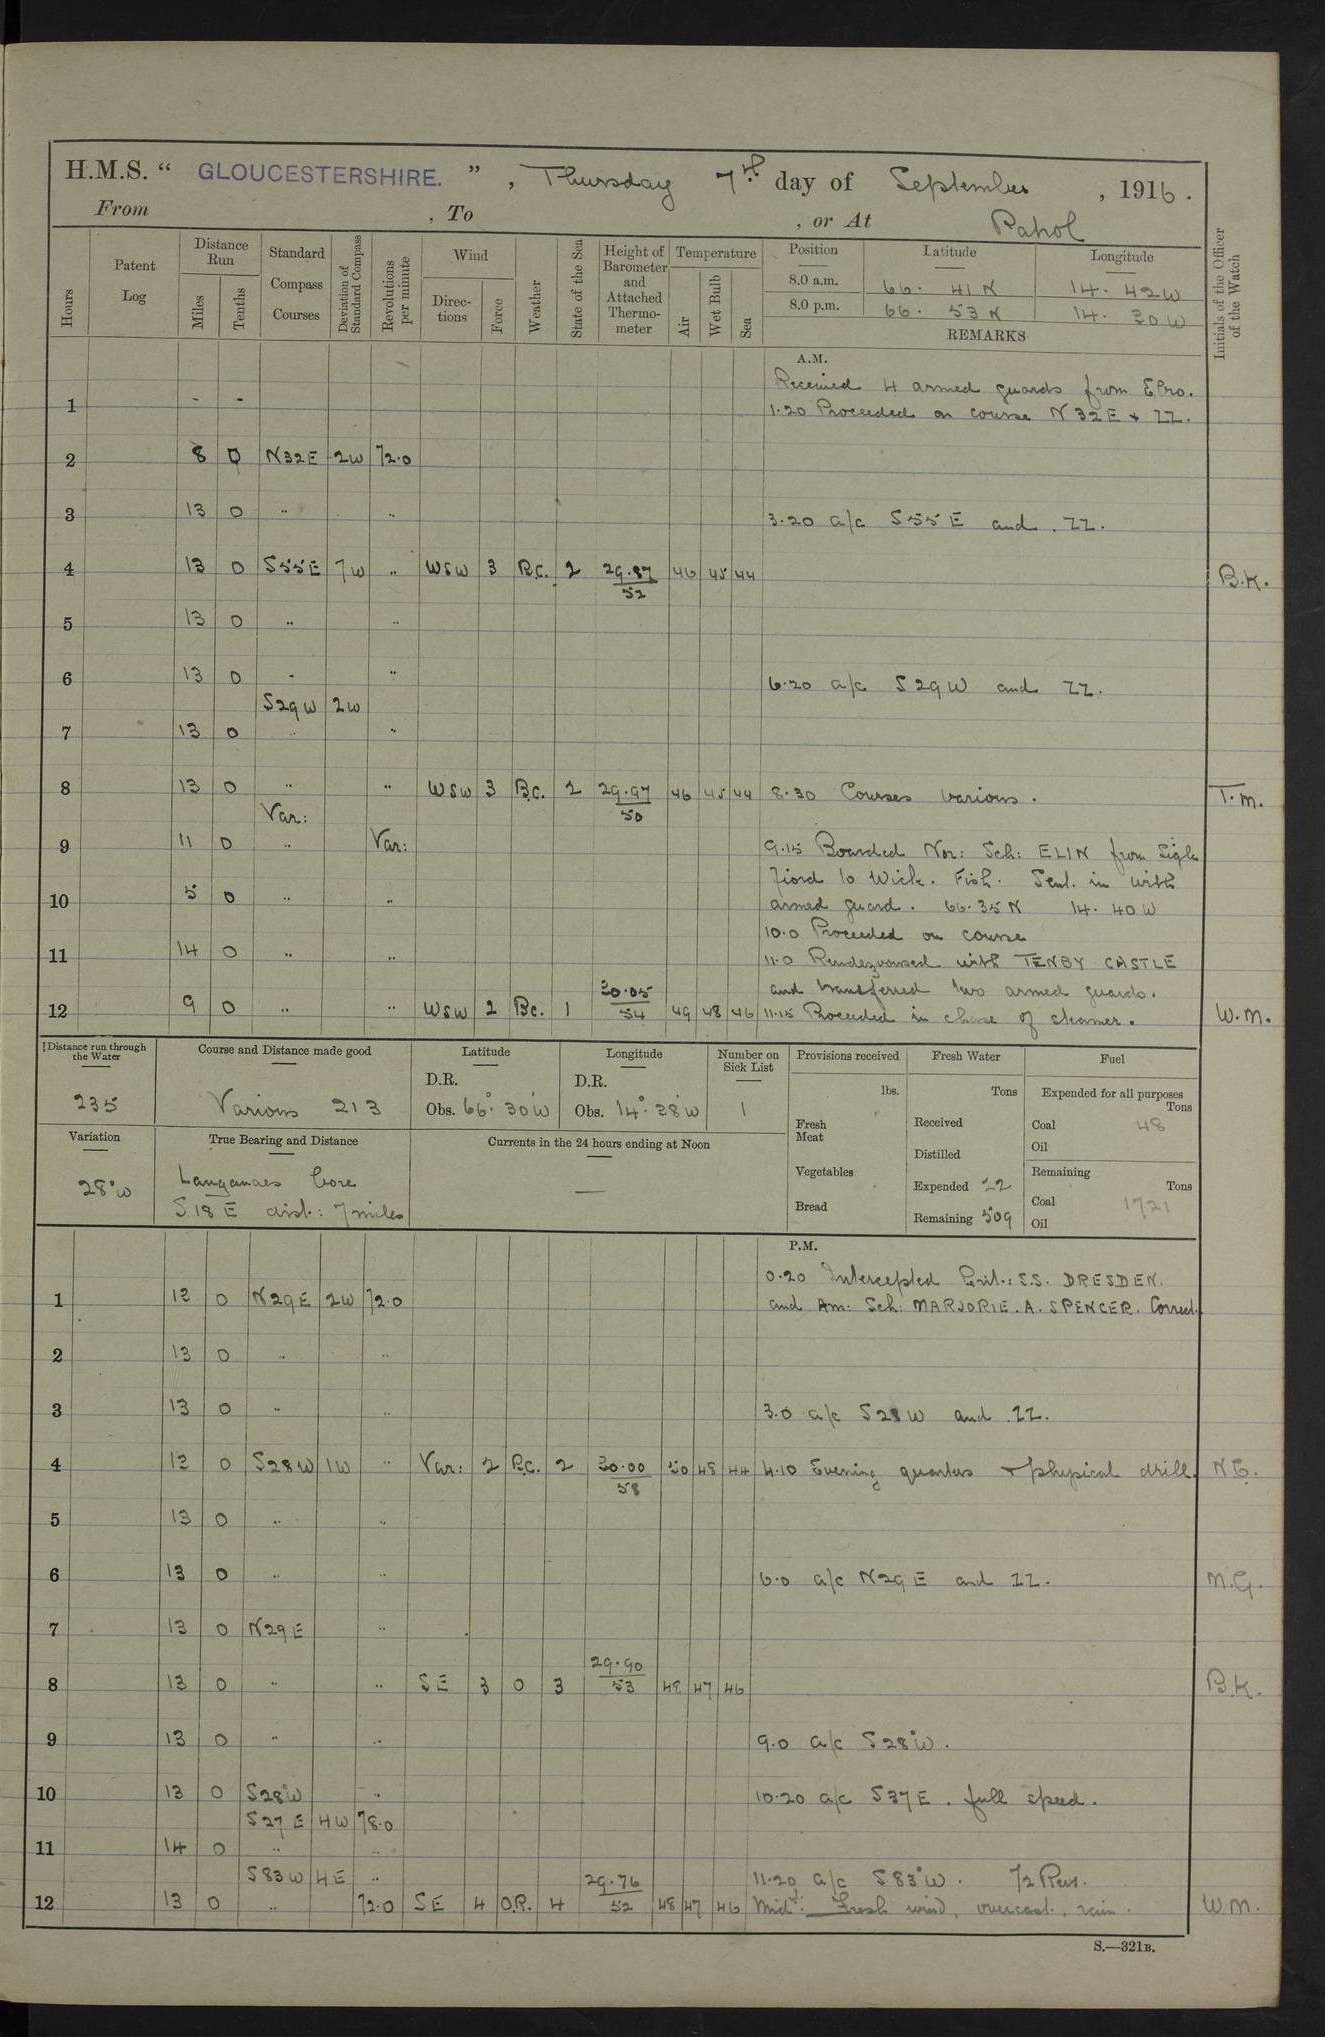 H.M.S. “ GLOUCESTERSHIRE. ” , Thursday 7th day of September , 1916.
From , To , or At Patrol
Hours
Patent Log
Distance Run
Miles
Tenths
Standard Compass Courses
Deviation of Standard Compass
Revolutions per minute
Wind
Directions
Force
Weather
State of the Sea
Height of Barometer and Attached Thermometer
Temperature
Air
Wet Bulb
Sea
Position Latitude Longitude
8.0 a.m. 66. 41 N 14. 42 W
8.0 p.m. 66. 53 N 14. 30 W
REMARKS
Initials of the Officer of the Watch
A.M.
Received 4 armed guards from Ebro.
1 - - 1.20 Proceeded on course N 32 E + ZZ.
2 8 0 N32E 2W 72.0
3 13 0 " " 3.20 a/c S55E and ZZ.
4 13 0 S55E 7W " WSW 3 B.C. 2 29.87/52 46 45 44 B.K.
5 13 0 " "
6 13 0 " " 6.20 a/c S29W and ZZ.
S29W 2W
7 13 0 " "
8 13 0 " " WSW 3 B.C. 2 29.97/50 46 45 44 8.30 Courses various. T.M.
Var:
9 11 0 " Var: 9.15 Boarded Nor: Sch: ELIN from Siglu
Fiord to Wick. Fish. Sent in with
10 5 0 " " armed guard. 66.35 N 14.40 W
10.0 Proceeded on course
11 14 0 " " 11.0 Rendezvoused with TENBY CASTLE
and transferred two armed guards.
12 9 0 " " WSW 2 Bc. 1 30.05/54 49 48 46 11.15 Proceeded in chase of steamer. W.M.
Distance run through the Water
235
Course and Distance made good
Various 213
Latitude
D.R.
Obs. 66° 30' W
Longitude
D.R.
Obs. 14° 38' W
Number on Sick List
1
Provisions received
lbs.
Fresh Meat
Vegetables
Bread
Fresh Water
Tons
Received
Distilled
Expended 22
Remaining 509
Fuel
Expended for all purposes
Tons
Coal 48
Oil
Remaining
Tons
Coal 1721
Oil
Variation
28° W
True Bearing and Distance
Langanaes
S 18 E dist: 7 miles
Currents in the 24 hours ending at Noon
—
P.M.
0.20 Intercepted Brit: S.S. DRESDEN.
1 12 0 N29E 2W 72.0 and Am: Sch: MARJORIE. A. SPENCER. Correct.
2 13 0 " "
3 13 0 " " 3.0 a/c S28W and ZZ.
4 12 0 S28W 1W " Var: 2 B.C. 2 30.00/58 50 48 44 4.10 Evening quarters + physical drill.
5 13 0 " "
6 13 0 " " 6.0 a/c N29E and ZZ. M.G.
7 13 0 N29E "
8 13 0 " " SE 3 O 3 29.90/53 48 47 46 B.K.
9 13 0 " " 9.0 a/c S28°W.
10 13 0 S28°W " 10.20 a/c S37E. full speed.
S27E 4W 78.0
11 14 0 " "
S83W 4E " 11.20 a/c S83°W. 72 Revs.
12 13 0 " 72.0 SE 4 O.R. 4 29.76/52 48 47 46 Midt: Fresh wind, overcast, rain. W.M.
S.—321B.